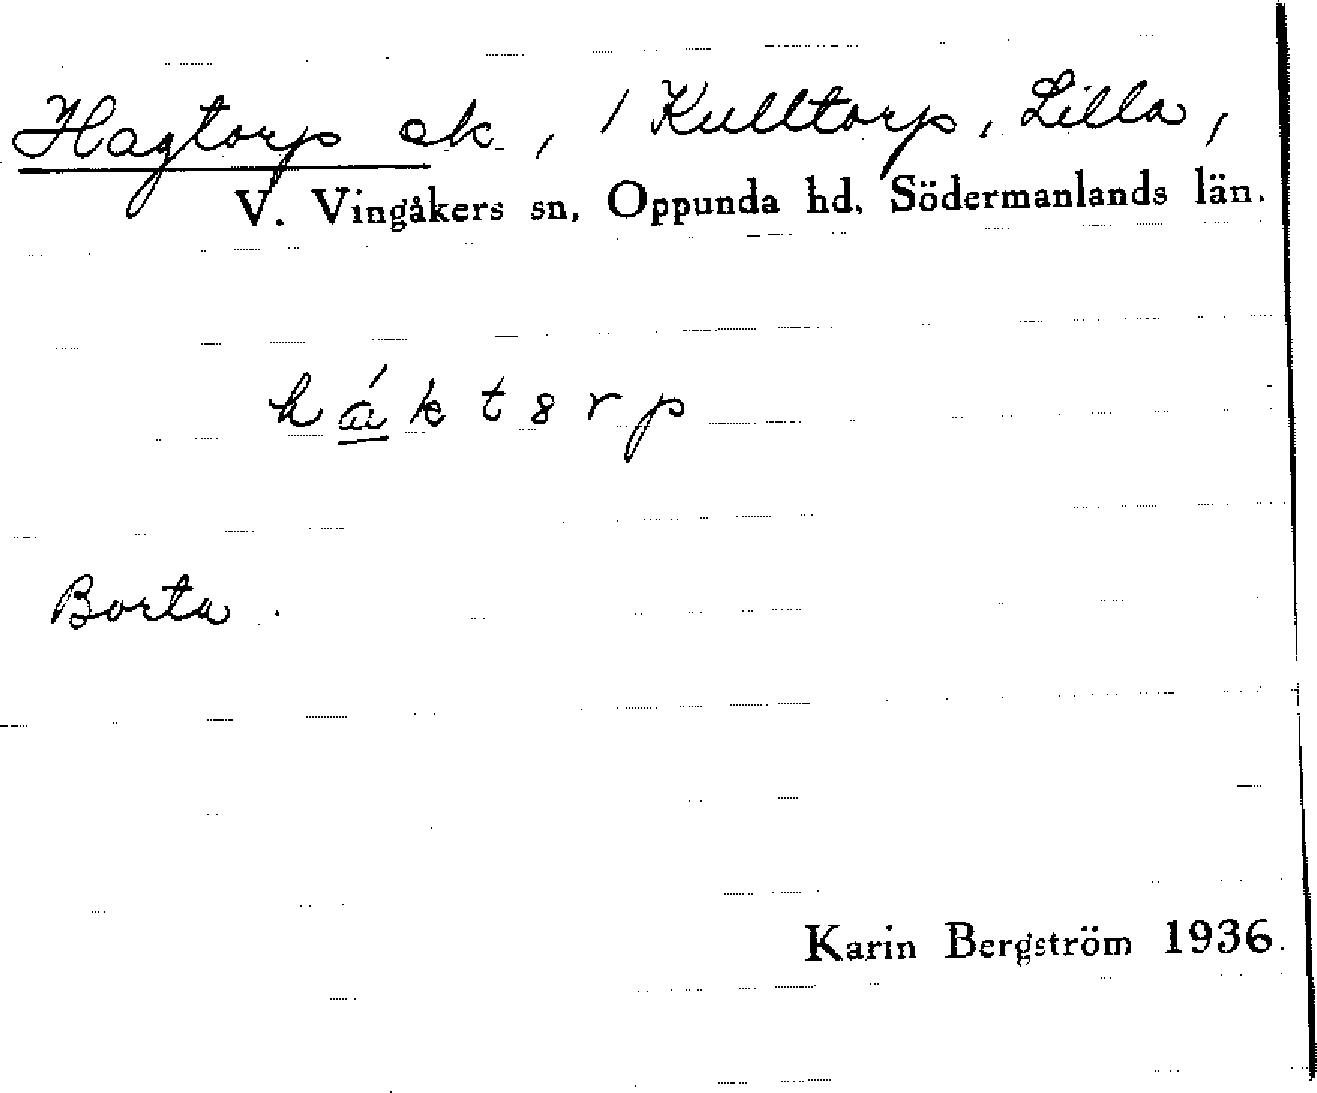 Hagtorp ek, / Kulltorp, Lilla,
V. Vingåkers sn, Oppunda hd, Södermanlands län.
há̲kt8rp
Borta.
Karin Bergström 1936.